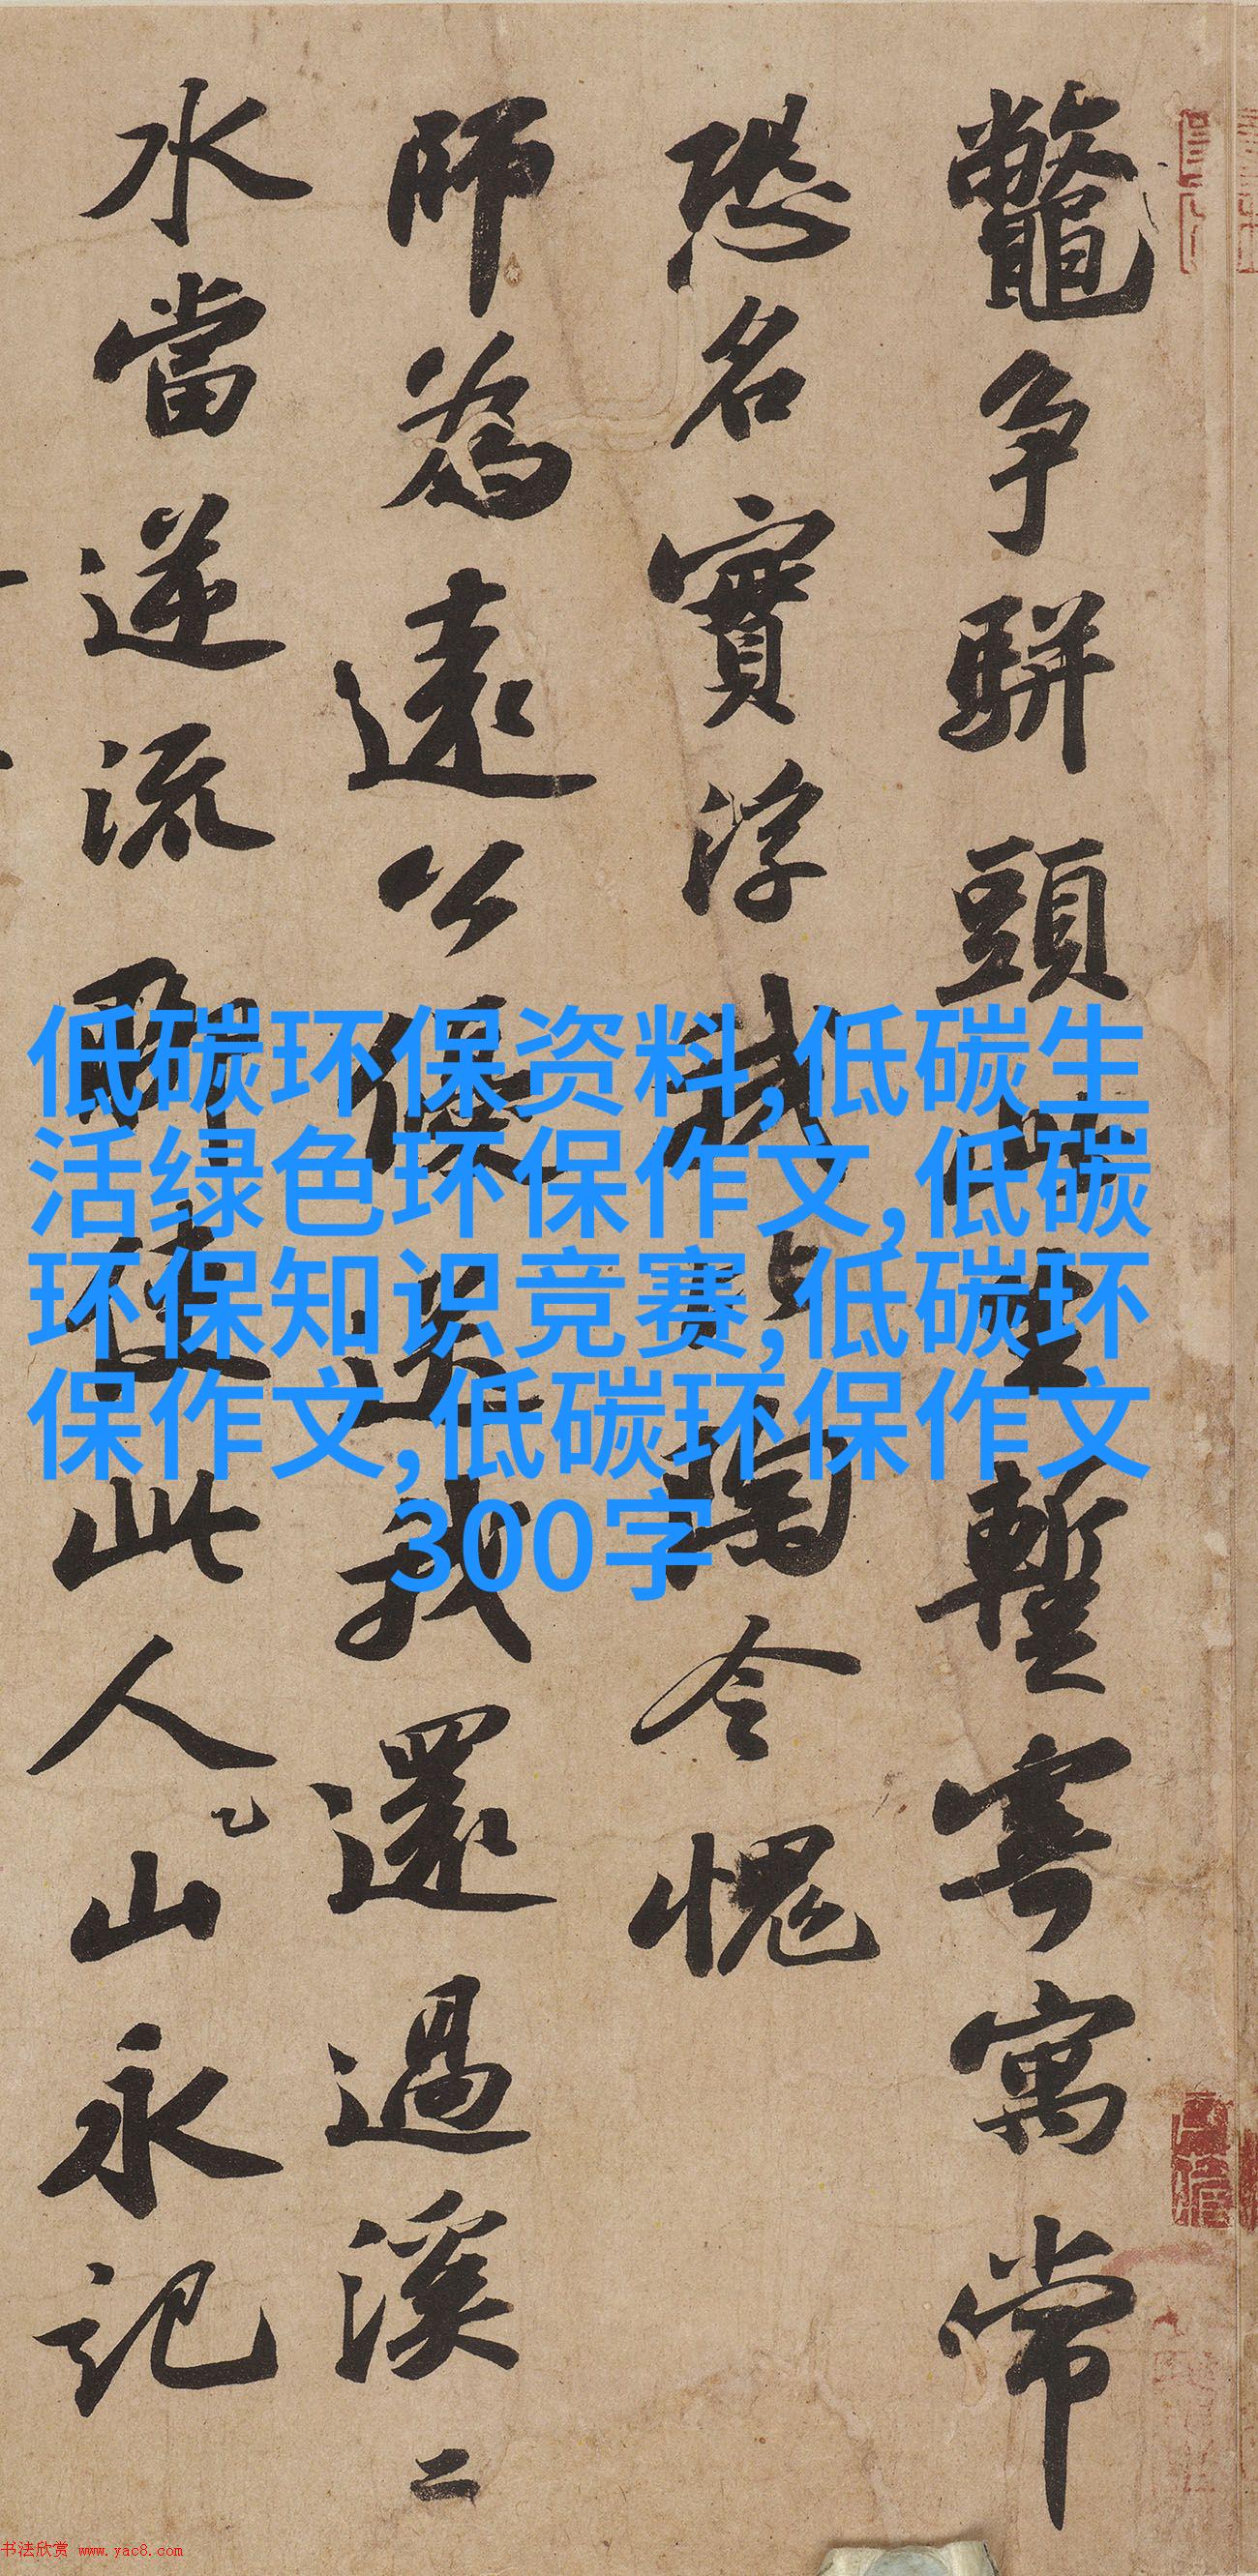 鼈争駢頭此生暫寄寓常
恐名實浮我比陶令愧
師為遠公優送我還過溪二
水當逆流聊使此人山永記
低碳环保资料,低碳生
活绿色环保作文,低碳
环保知识竞赛,低碳环
保作文,低碳环保作文
300字
书法欣赏 www.yac8.com